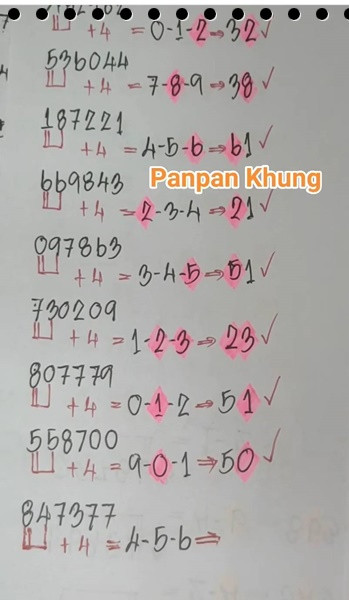 +4 = 0-1-2⇒32✓
536044
+4 = 7-8-9⇒38✓
187221
+4 = 4-5-6⇒61✓
Panpan Khung
669843
+4 = 2-3-4⇒21✓
097863
+4 = 3-4-5⇒51✓
730209
+4 = 1-2-3⇒23✓
807779
+4 = 0-1-2⇒51✓
558700
+4 = 9-0-1⇒50✓
847377
+4 = 4-5-6⇒